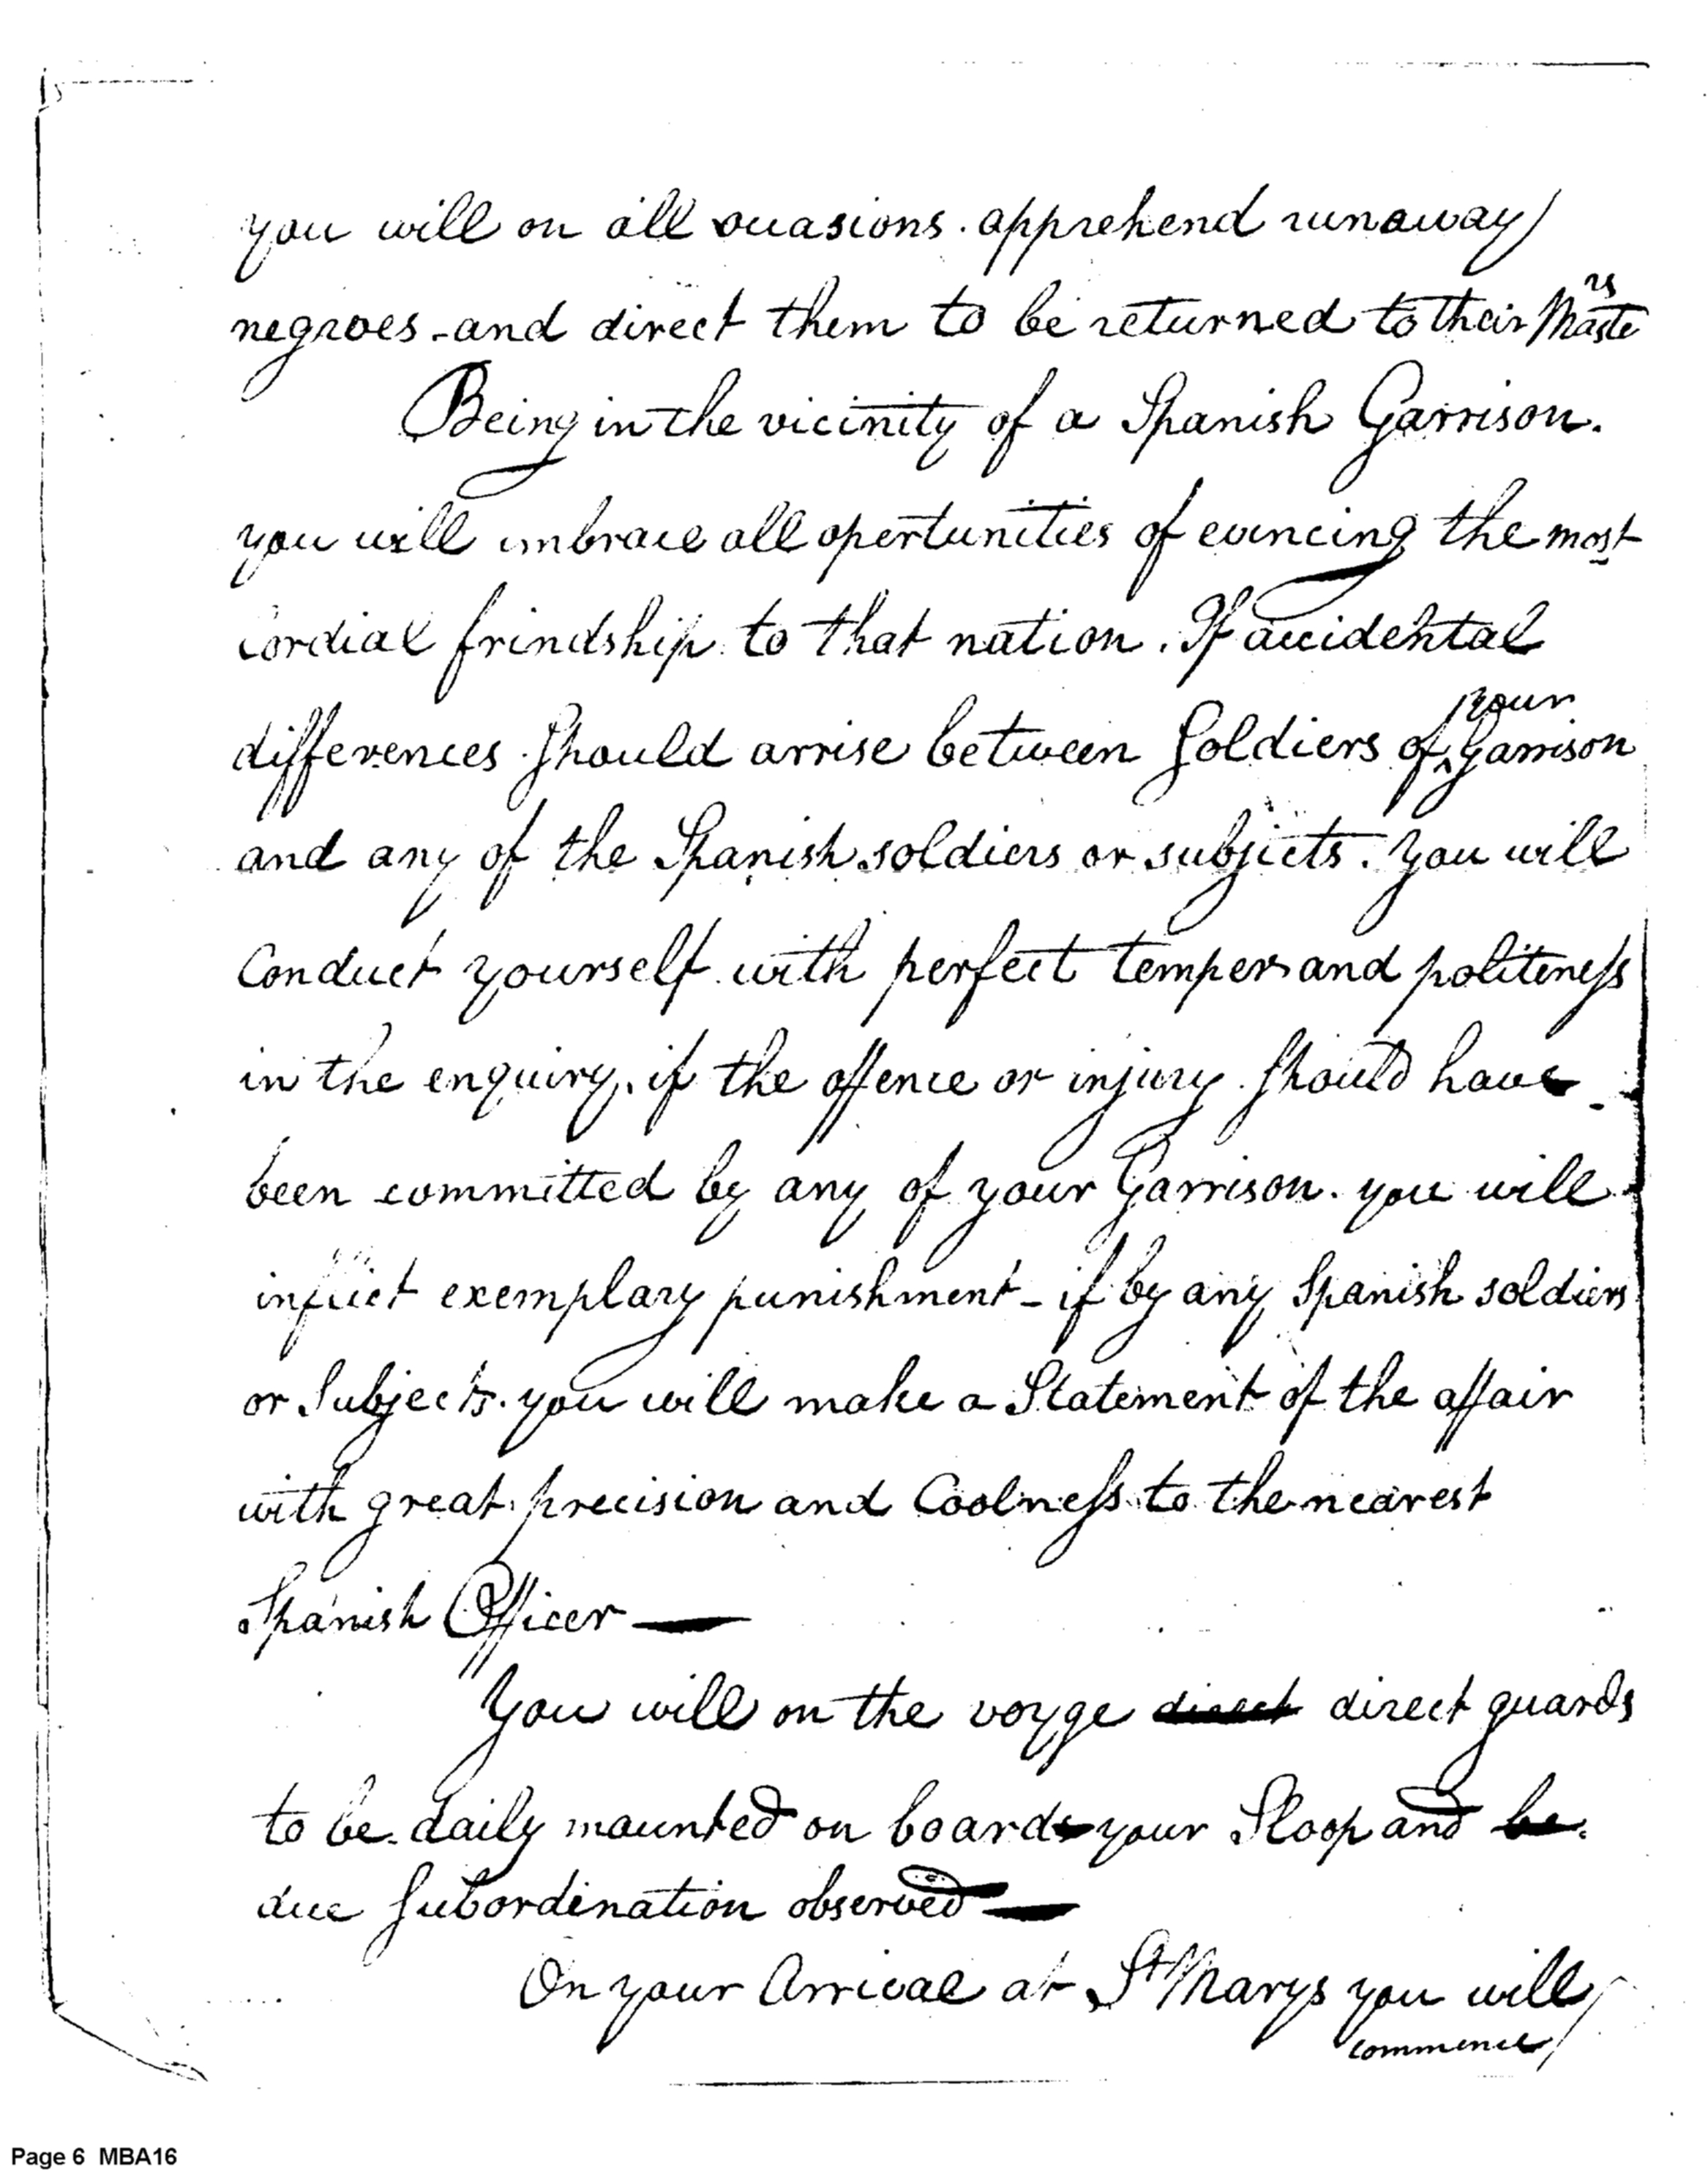 you will on all occasions. apprehend runaway
negroes - and direct them to be returned to their Masters
Being in the vicinity of a Spanish Garrison.
you will imbrace all opertunities of evincing the most
Cordial frindship to that nation. If accidental
differences should arrise between Soldiers of your Garrison
and any of the Spanish soldiers or subjects. you will
Conduct yourself with perfect temper and politeness
in the enquiry. if the offence or injury should have
been committed by any of your Garrison. you will
inflict exemplary punishment - if by any Spanish soldiers
or Subjects. you will make a Statement of the affair
with great precision and Coolness to the nearest
Spanish Officer —
You will on the voyge direct direct guards
to be daily mounted on board your Sloop and be
due Subordination observed —
On your Arrival at St Marys you will
commence
Page 6 MBA16